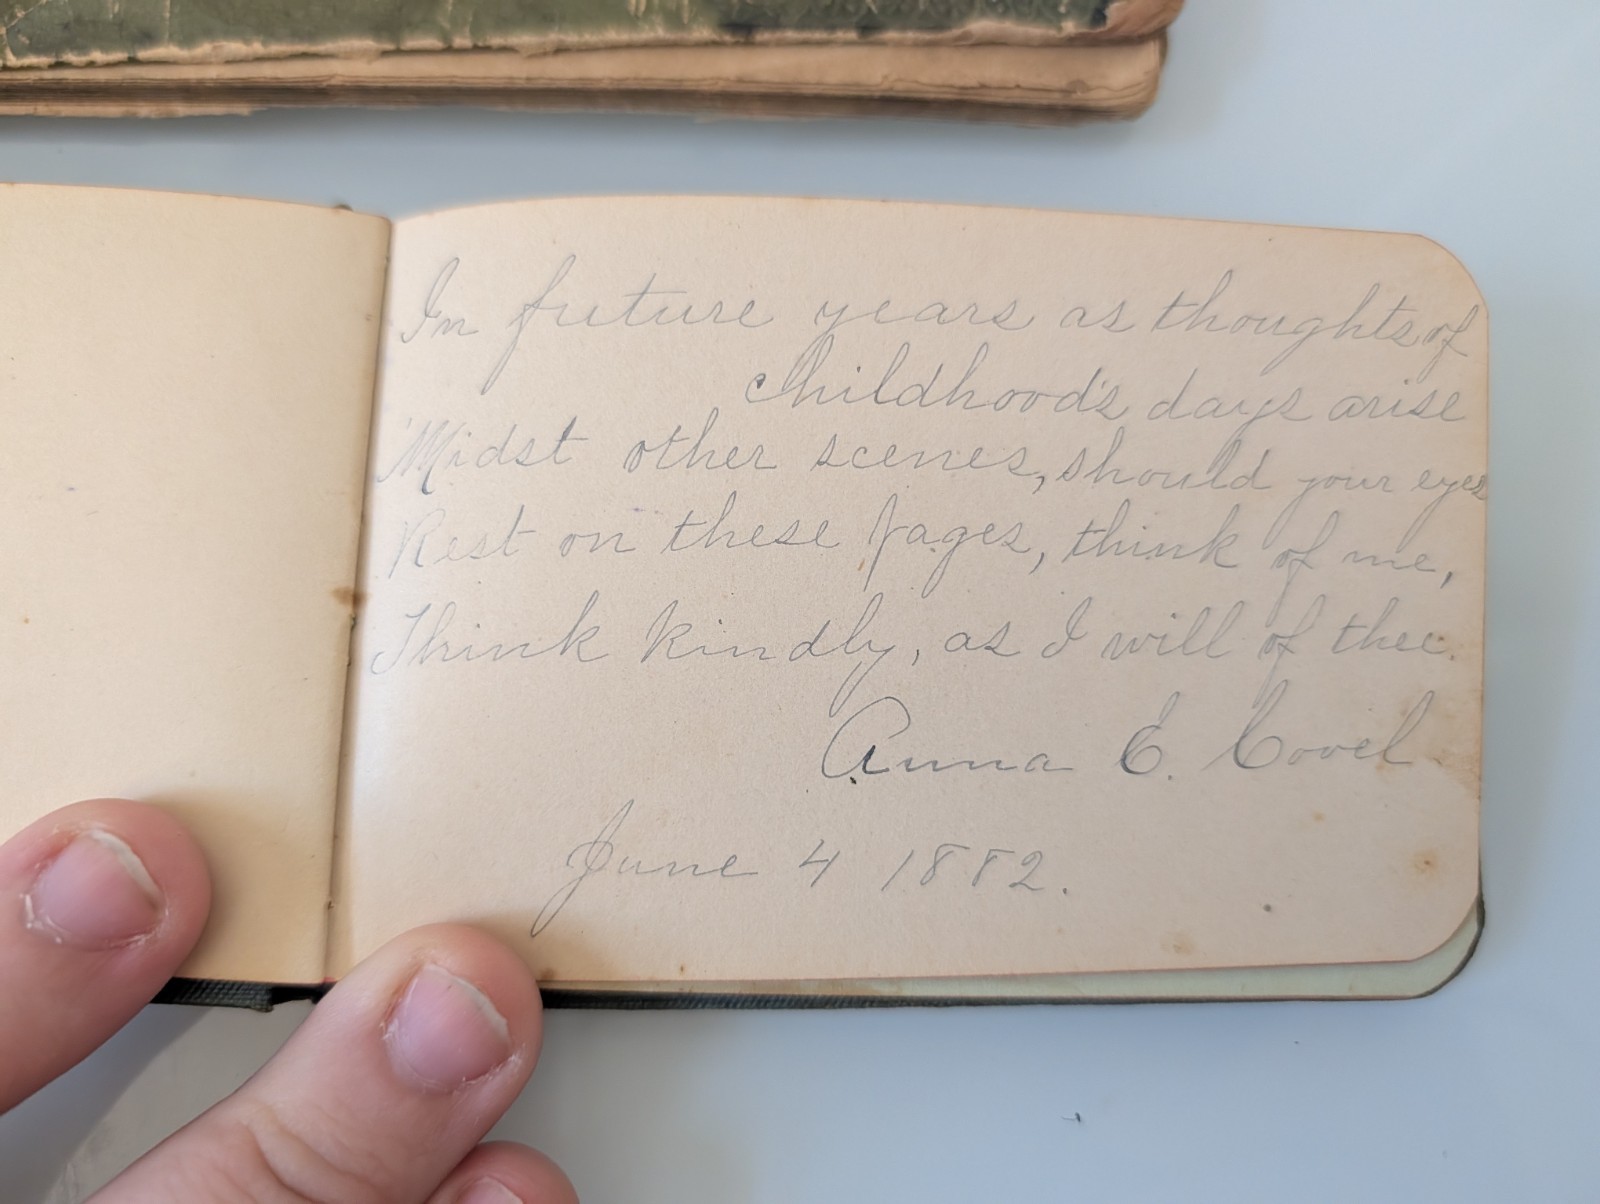 In future years as thoughts of
childhood's days arise
'Midst other scenes, should your eyes
Rest on these pages, think of me,
Think kindly, as I will of thee.
Anna E. Covel
June 4 1882.